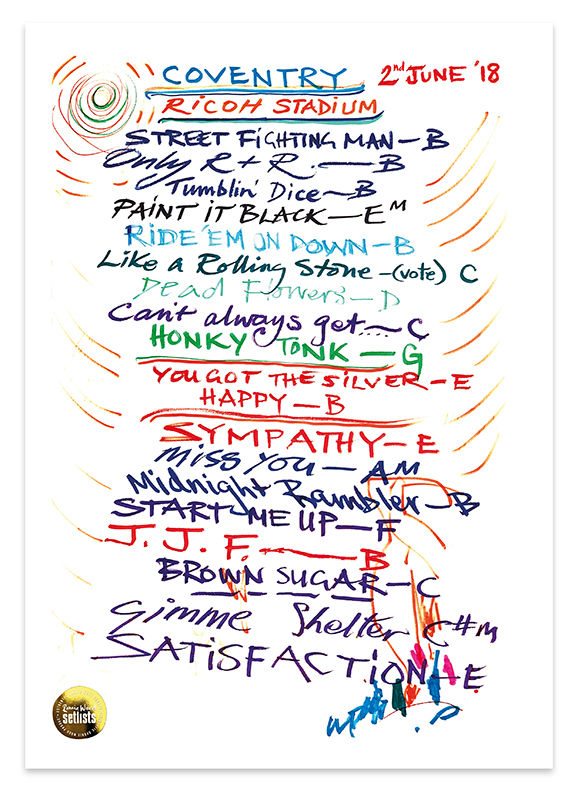 COVENTRY 2nd JUNE '18
RICOH STADIUM
STREET FIGHTING MAN — B
Only R + R. — B
Tumblin' Dice — B
PAINT IT BLACK — E M
RIDE 'EM ON DOWN — B
Like a Rolling Stone - (vote) C
Dead Flowers — D
Can't always get.... C
HONKY TONK — G
YOU GOT THE SILVER — E
HAPPY — B
SYMPATHY — E
MISS YOU — AM
Midnight Rambler — B
START ME UP — F
J. J. F. — B
BROWN SUGAR — C
Gimme Shelter C#M
SATISFACTION — E
Ronnie Wood
setlists